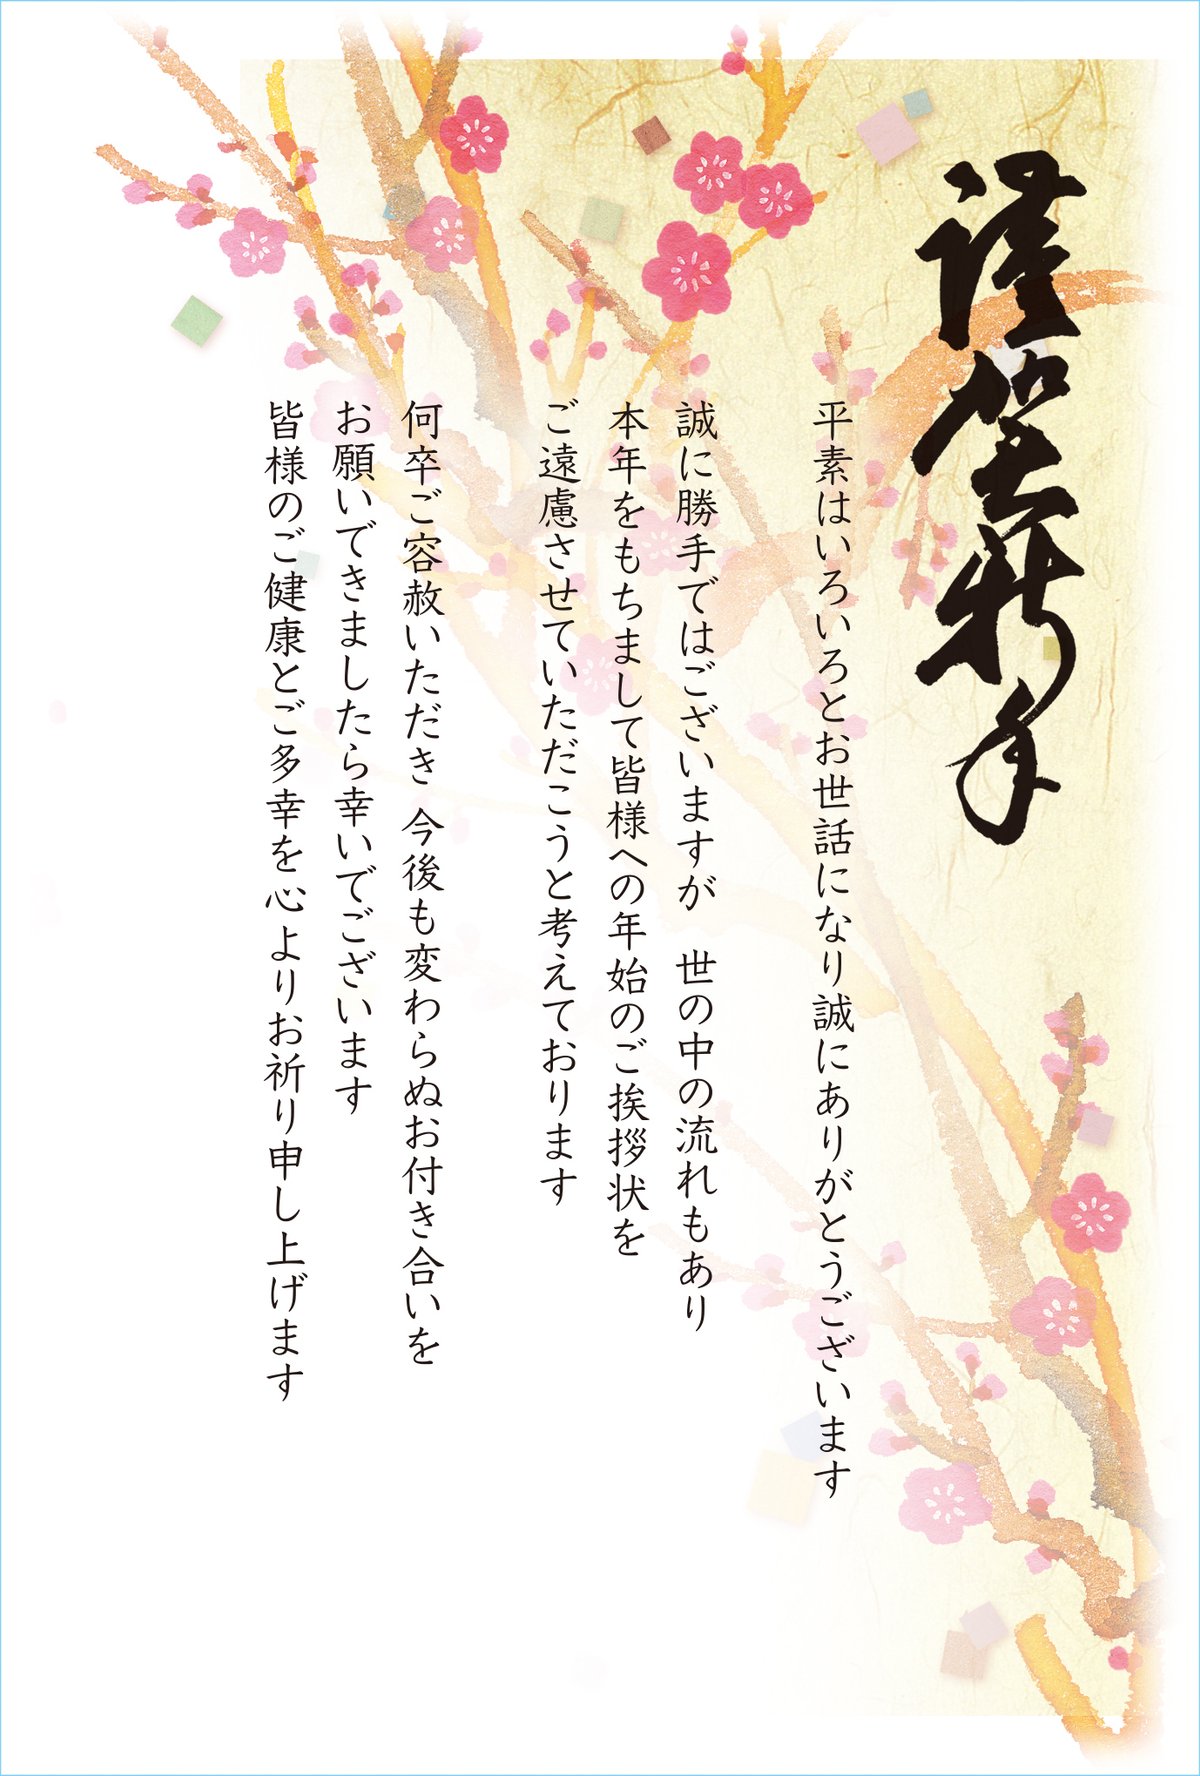 謹賀新年
平素はいろいろとお世話になり誠にありがとうございます
誠に勝手ではございますが　世の中の流れもあり
本年をもちまして皆様への年始のご挨拶状を
ご遠慮させていただこうと考えております
何卒ご容赦いただき 今後も変わらぬお付き合いを
お願いできましたら幸いでございます
皆様のご健康とご多幸を心よりお祈り申し上げます